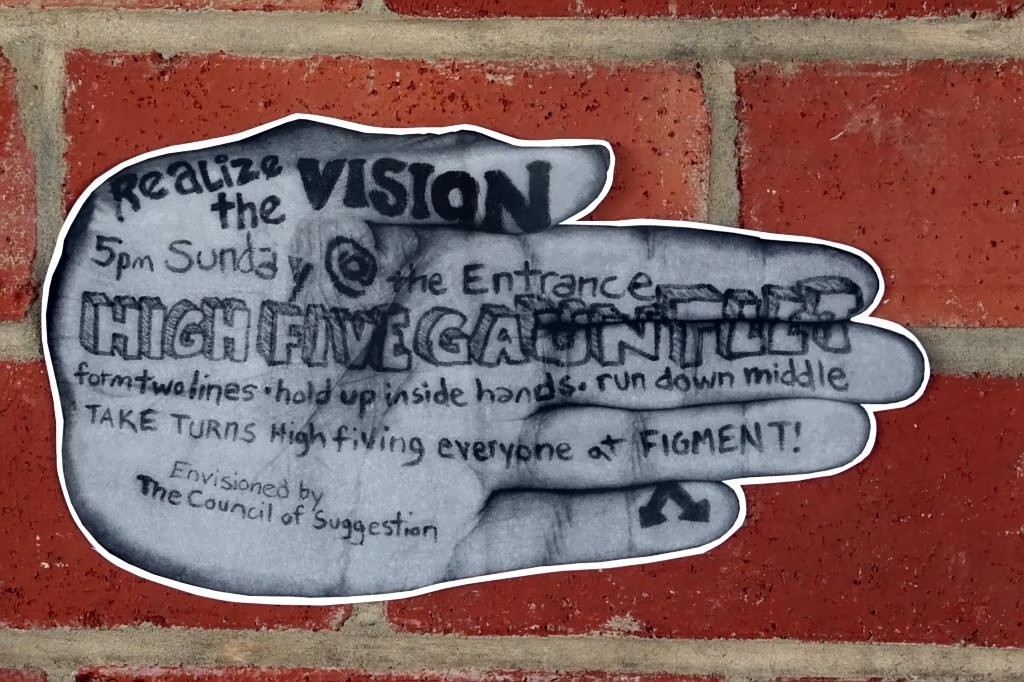 Realize
the VISION
5pm Sunday @ the Entrance
HIGH FIVE GAUNTLET
form two lines • hold up inside hands • run down middle
TAKE TURNS High fiving everyone at FIGMENT!
Envisioned by
The Council of Suggestion